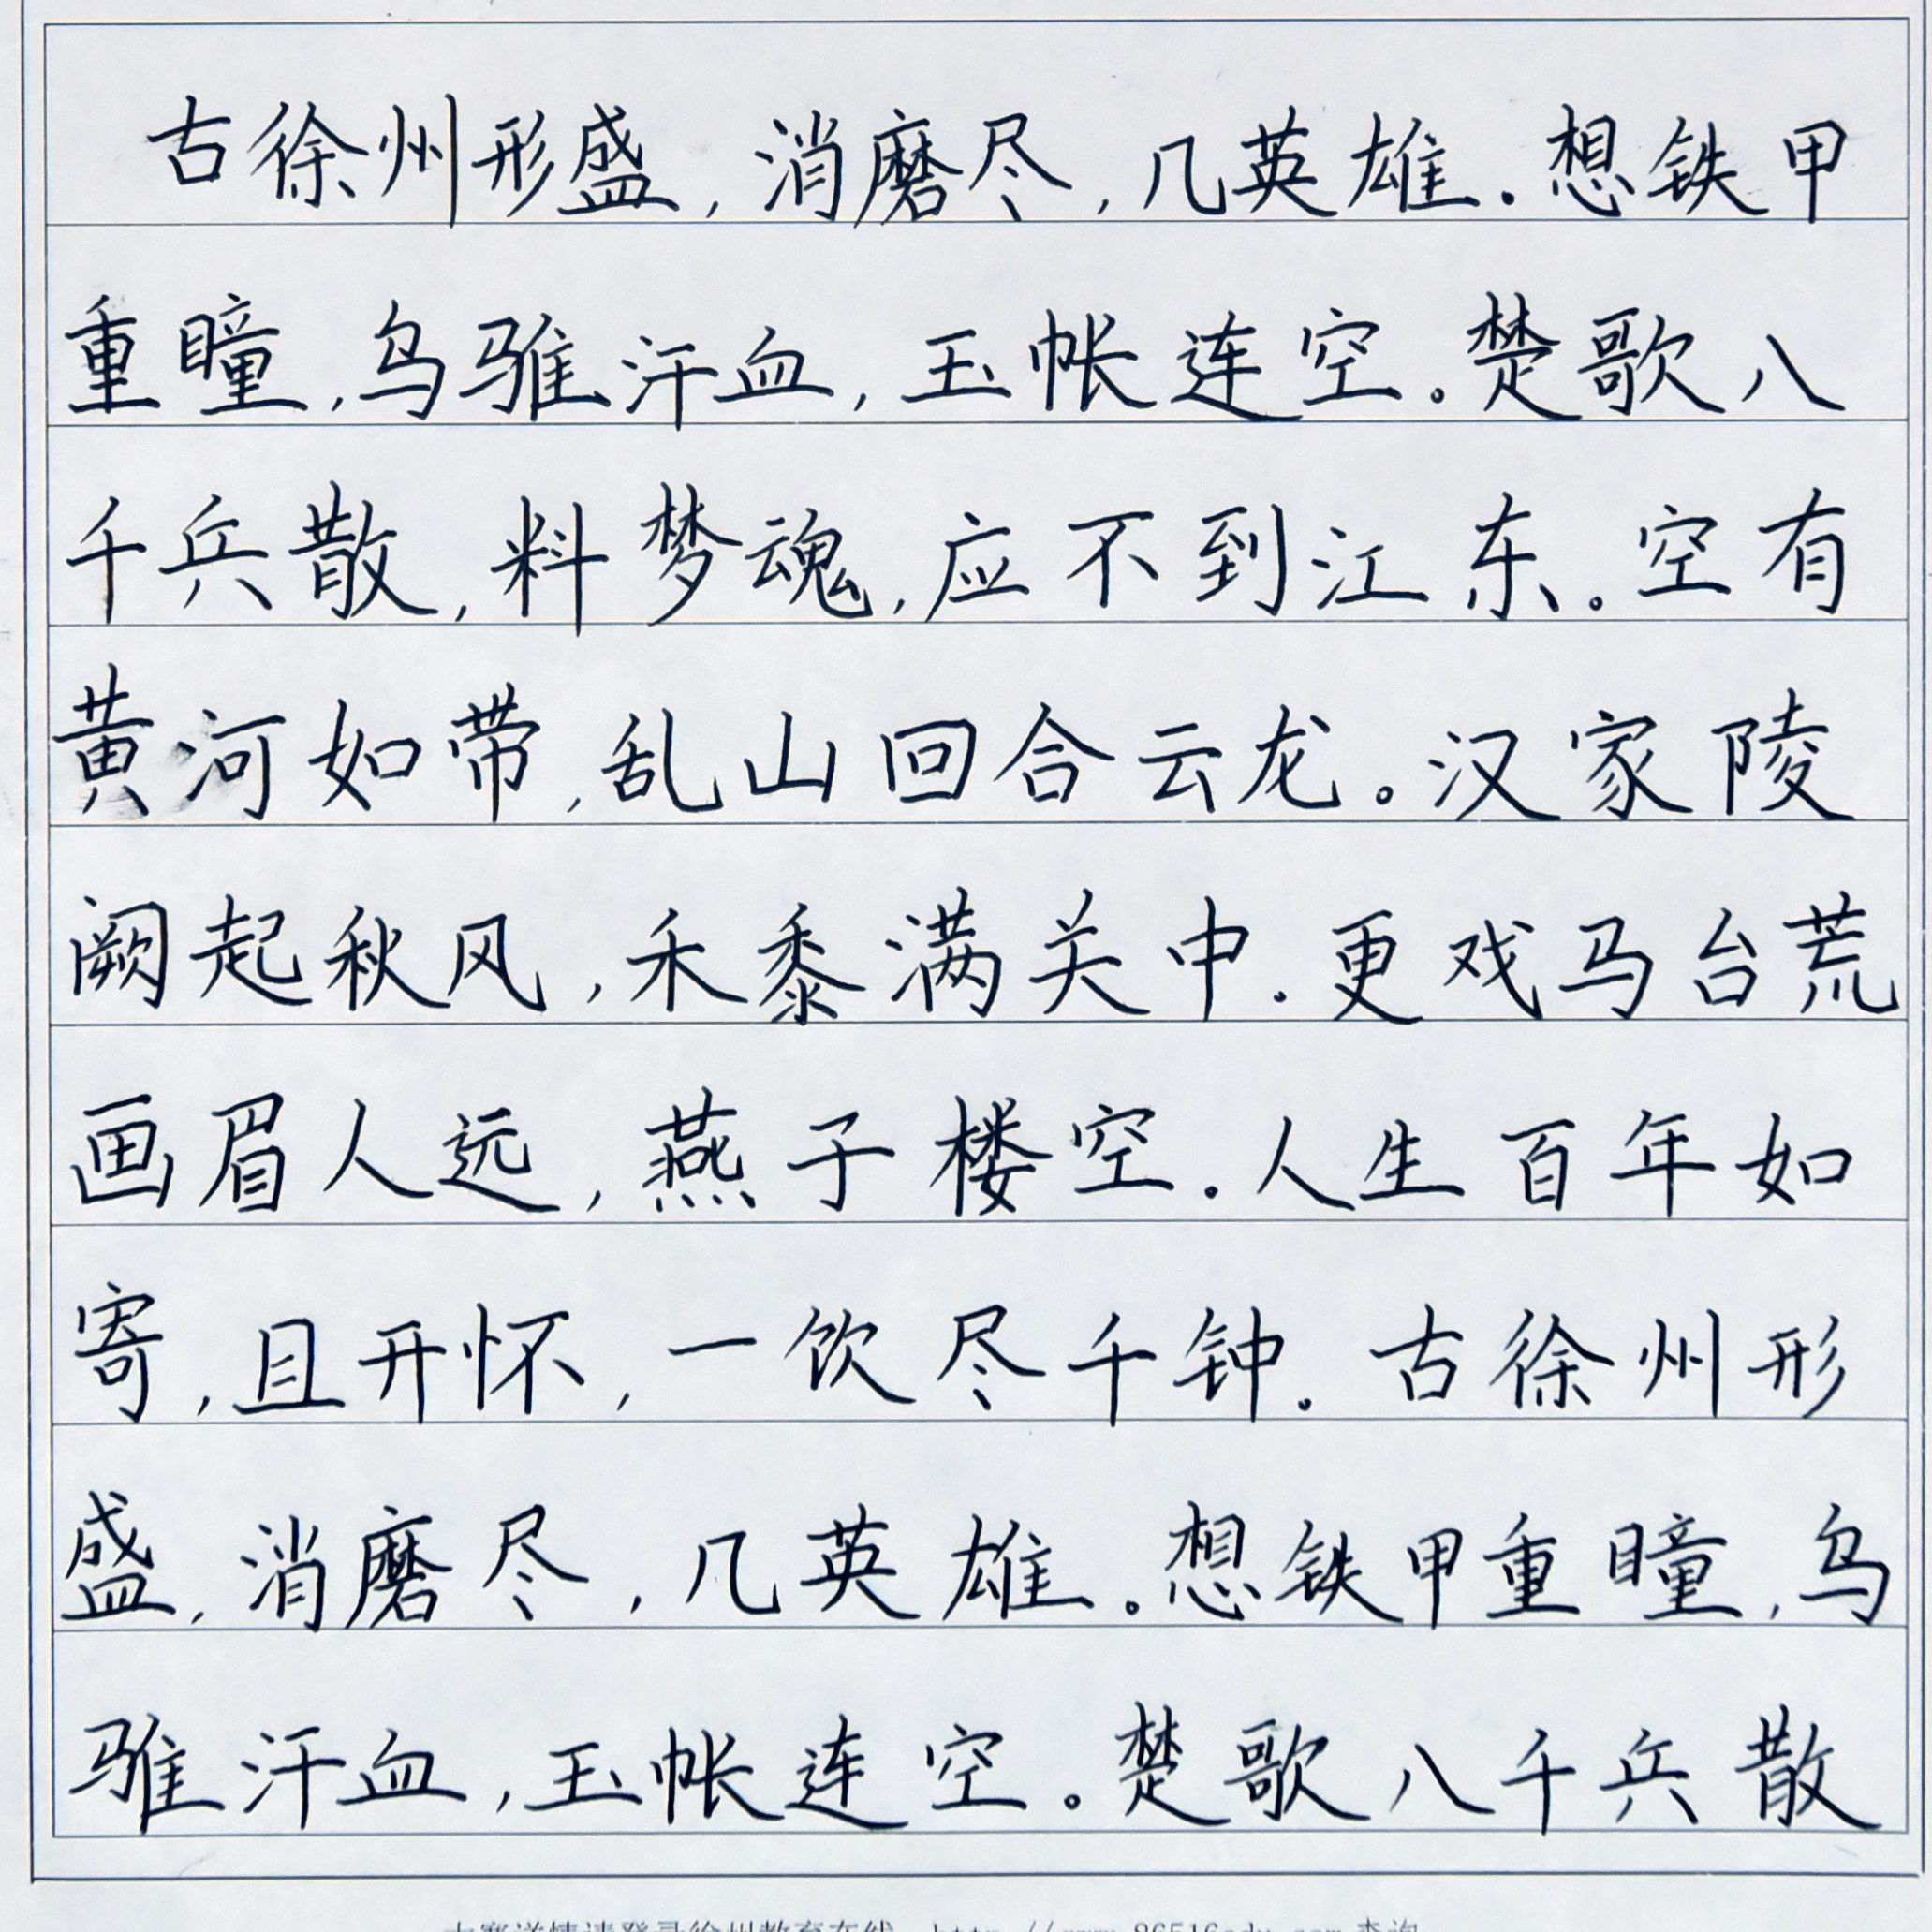 古徐州形盛,消磨尽,几英雄.想铁甲
重瞳,乌骓汗血,玉帐连空。楚歌八
千兵散,料梦魂,应不到江东。空有
黄河如带,乱山回合云龙。汉家陵
阙起秋风,禾黍满关中.更戏马台荒
画眉人远,燕子楼空.人生百年如
寄,且开怀,一饮尽千钟.古徐州形
盛,消磨尽,几英雄。想铁甲重瞳,乌
骓汗血,玉帐连空。楚歌八千兵散